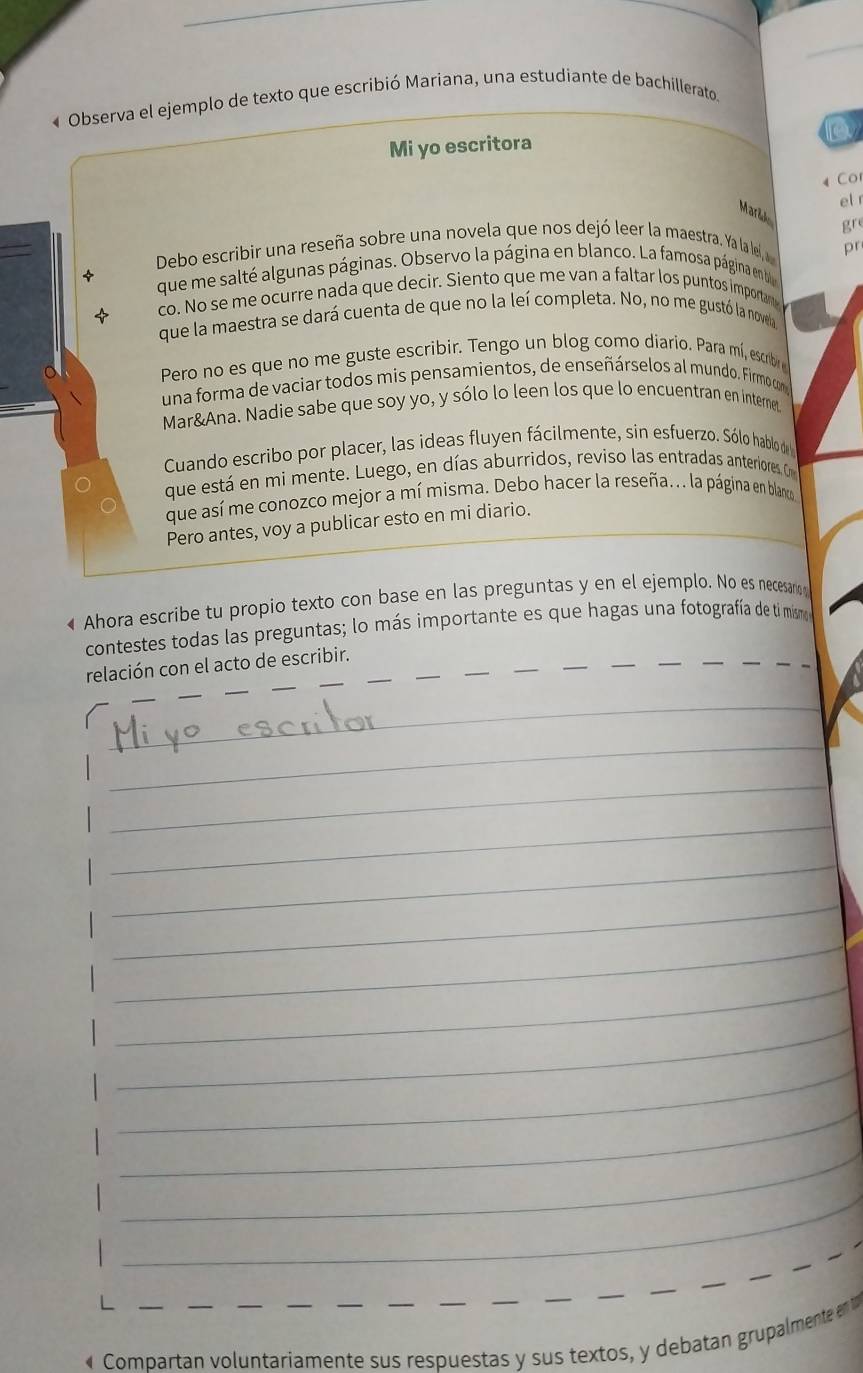 Observa el ejemplo de texto que escribió Mariana, una estudiante de bachillerato.
Mi yo escritora
Debo escribir una reseña sobre una novela que nos dejó leer la maestra. Ya la leí,
que me salté algunas páginas. Observo la página en blanco. La famosa página en
co. No se me ocurre nada que decir. Siento que me van a faltar los puntos
que la maestra se dará cuenta de que no la leí completa. No, no me gustó la novela.
Pero no es que no me guste escribir. Tengo un blog como diario. Para mí, escribir
una forma de vaciar todos mis pensamientos, de enseñárselos al mundo. Firmo
Mar&Ana. Nadie sabe que soy yo, y sólo lo leen los que lo encuentran en internet.
Cuando escribo por placer, las ideas fluyen fácilmente, sin esfuerzo. Sólo hablo
que está en mi mente. Luego, en días aburridos, reviso las entradas anteriores.
que así me conozco mejor a mí misma. Debo hacer la reseña... la página en blanco...
Pero antes, voy a publicar esto en mi diario.
Ahora escribe tu propio texto con base en las preguntas y en el ejemplo. No es necesario
contestes todas las preguntas; lo más importante es que hagas una fotografía de ti
relación con el acto de escribir.
Mi yo escritor
Compartan voluntariamente sus respuestas y sus textos, y debatan grupalmente